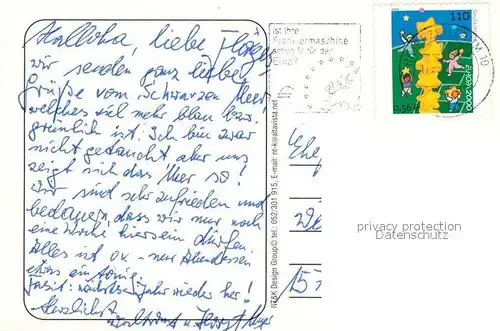 Halloha, liebe
wir senden ganz liebe
Grüße vom Schwarzen Meer,
welches viel mehr blau bzw.
grünlich ist. Ich bin zwar
nicht getaucht aber uns
zeigt sich das Meer so!
Wir sind sehr zufrieden und
bedauern, dass wir nur noch
eine Woche hier sein dürfen.
Alles ist ok - nur Abendessen
etwas eintönig.
Fazit: nächstes Jahr wieder her!
Herzlichst
u. Horst
Ist Ihre
Frankiermaschine
schon fit für den
Euro?
110
0,56 €
EUROPA 2000
10
NT&K Design Group© tel.: 052/301 915, E-mail: nt-k@altavista.net
Ehe
15
privacy protection
Datenschutz